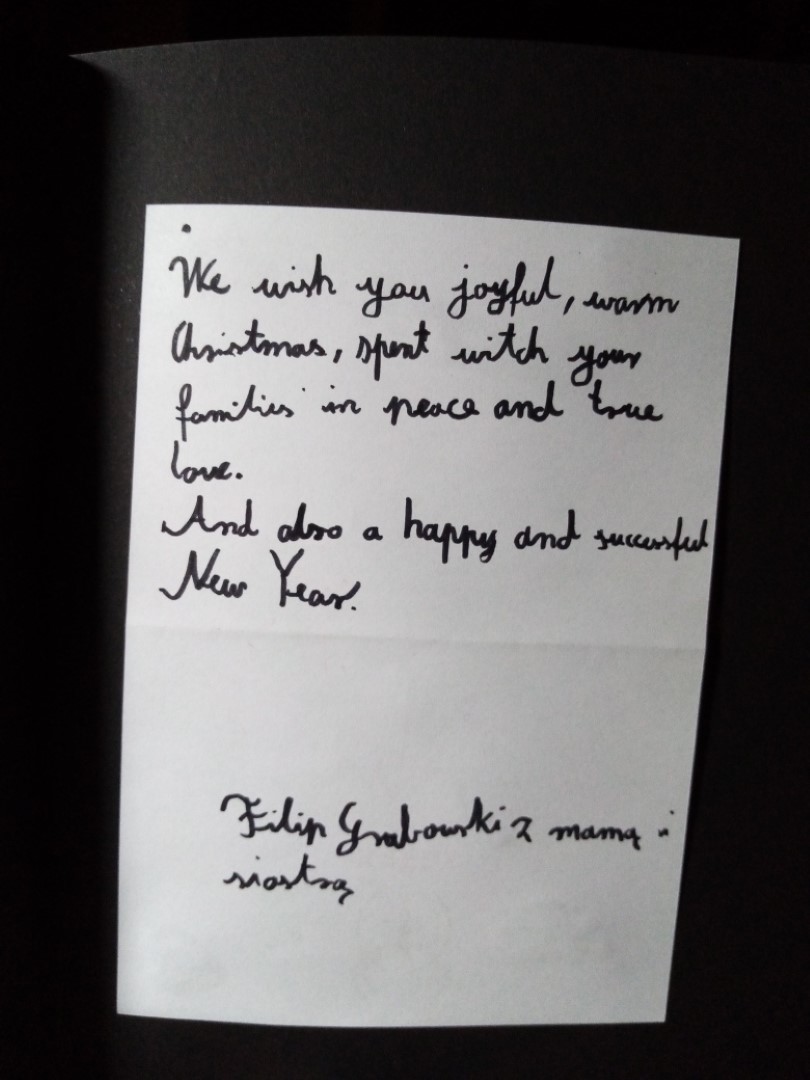 We wish you joyful, warm
Christmas, spent witch your
families in peace and true
love.
And also a happy and successful
New Year.
Filip Grabowski z mamą i
siostrą